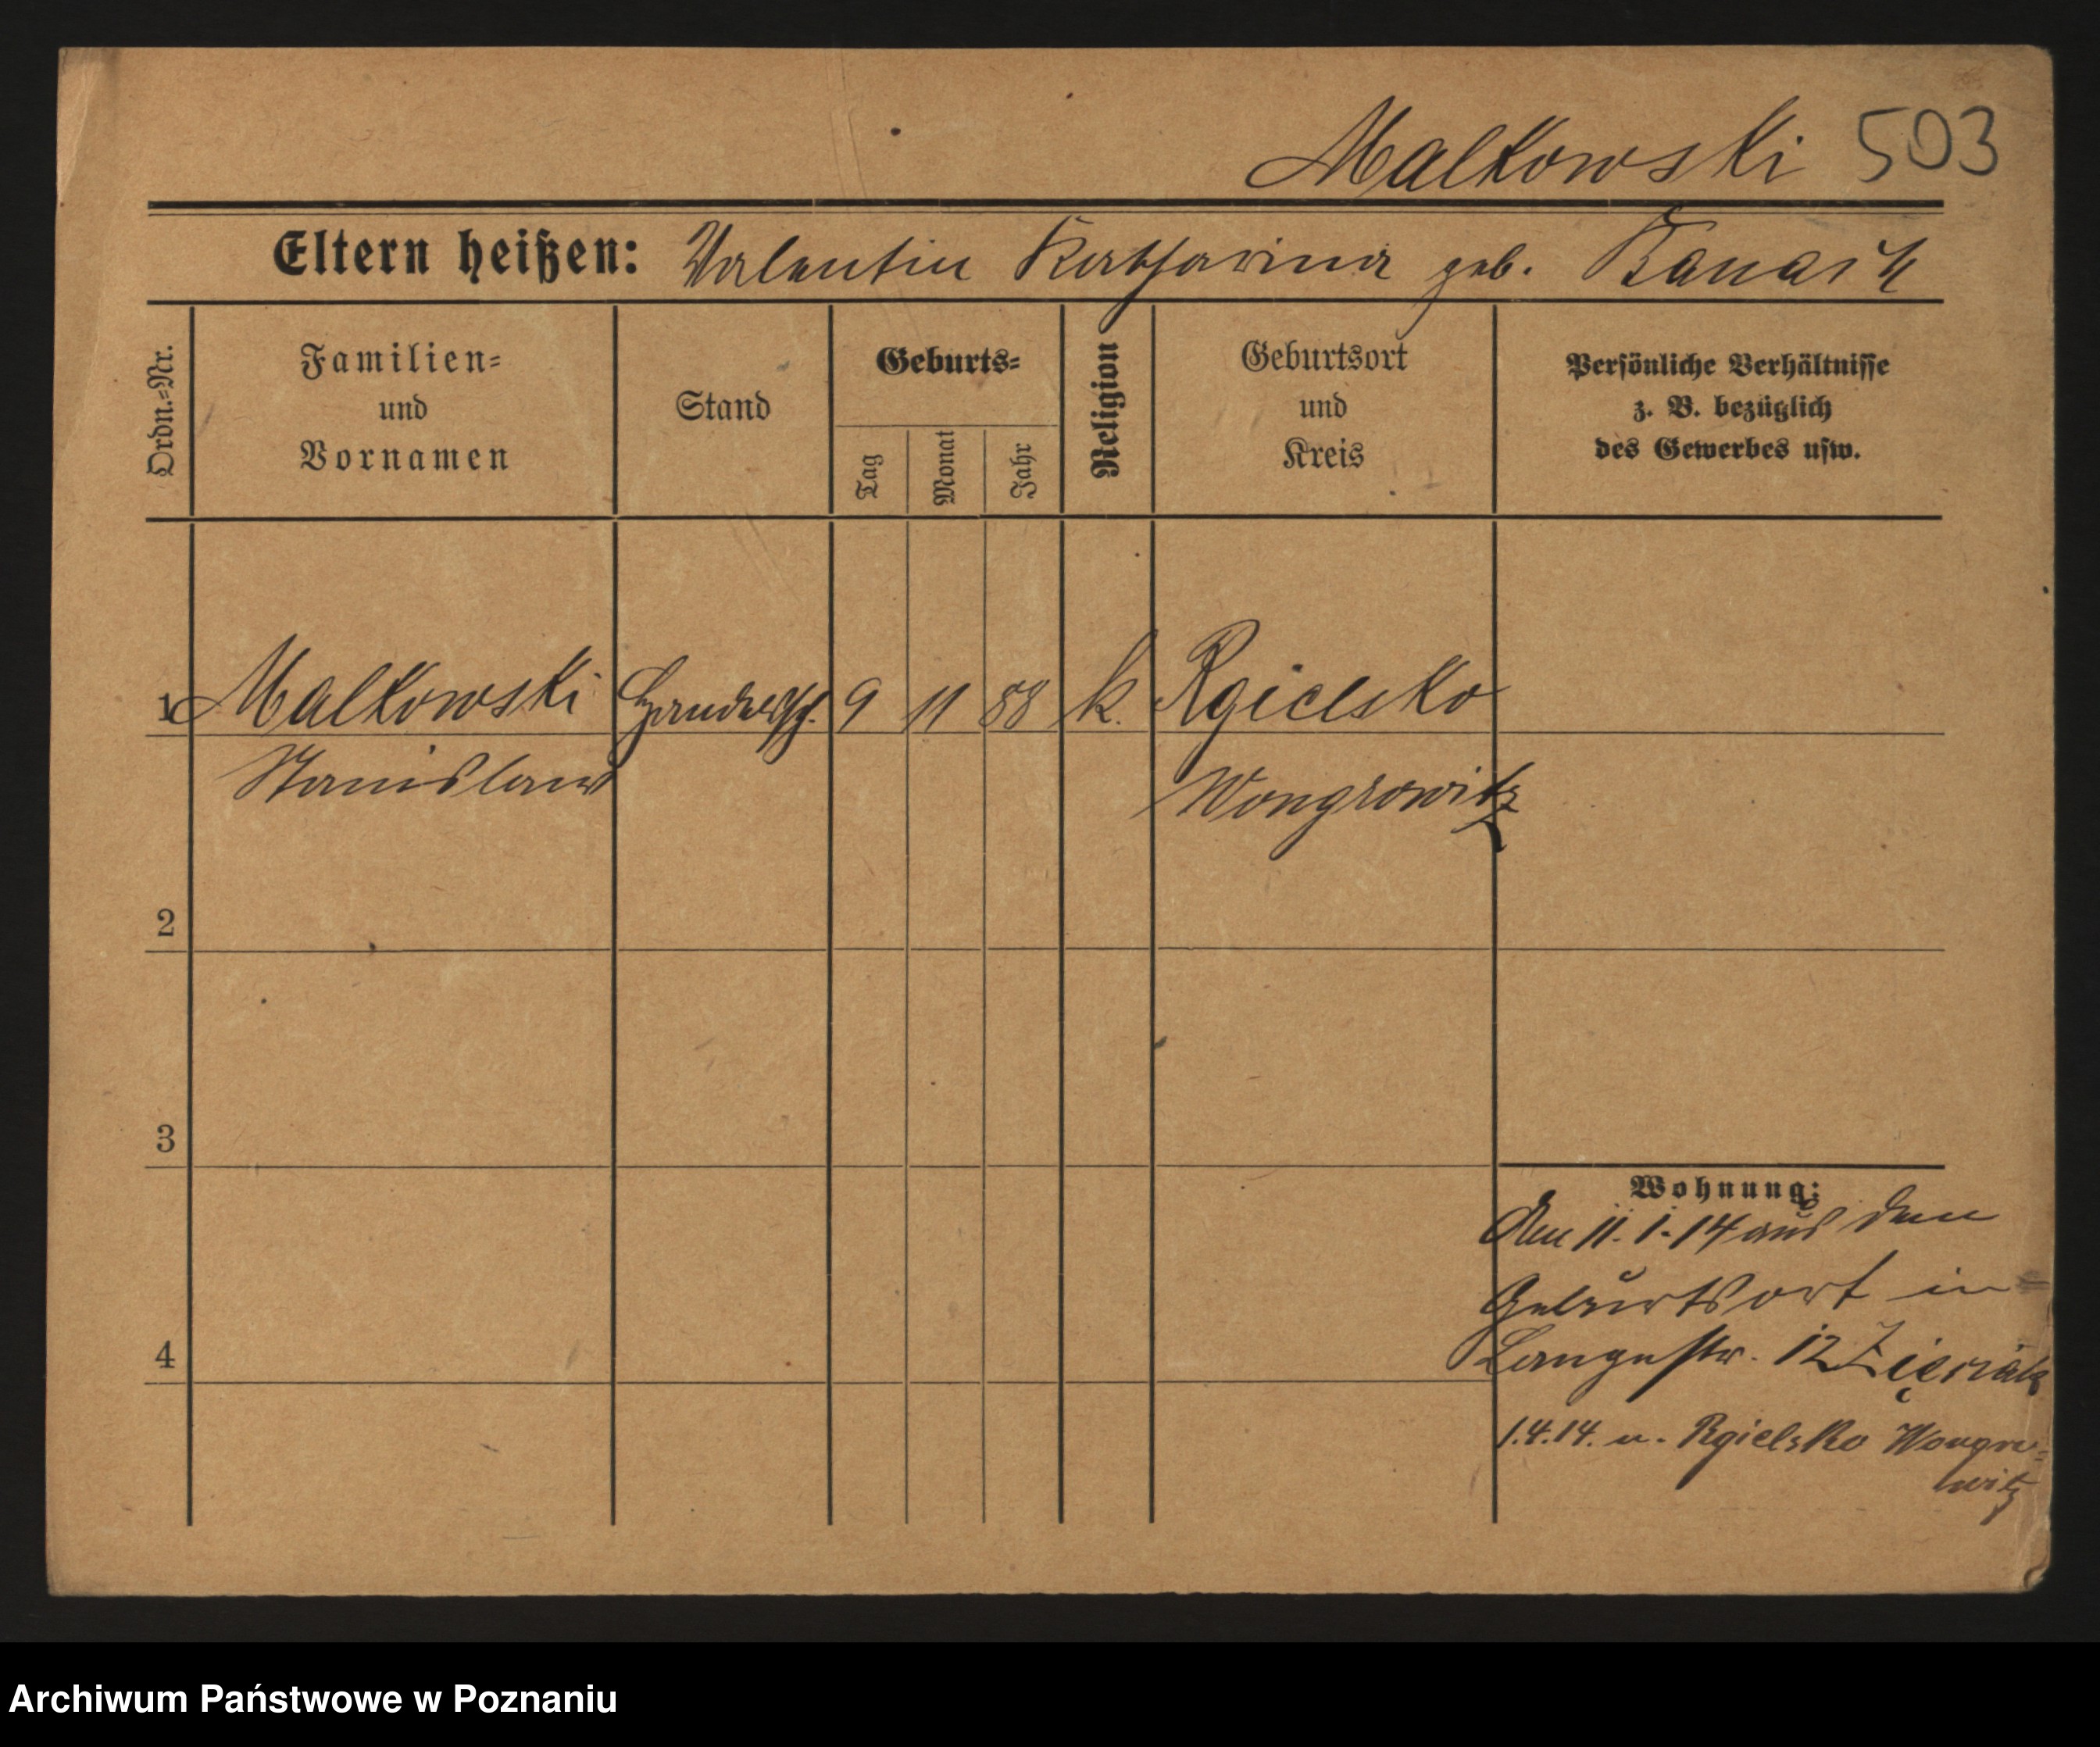 Malkowski 503
Eltern heißen: Valentin Katharina geb.
Ordn.=Nr.
Familien=
und
Vornamen
Stand
Geburts=
Tag
Monat
Jahr
Religion
Geburtsort
und
Kreis
Persönliche Verhältnisse
z. B. bezüglich
des Gewerbes usw.
1 Malkowski 9 11 88 k. Rgielsko
Stanislaus Wongrowitz
2
3
Wohnung:
Den 11.1.14 aus dem
Geburtsort in
Langestr. 12
4
1.4.14. n. Rgielsko Wongro=
witz
Archiwum Państwowe w Poznaniu